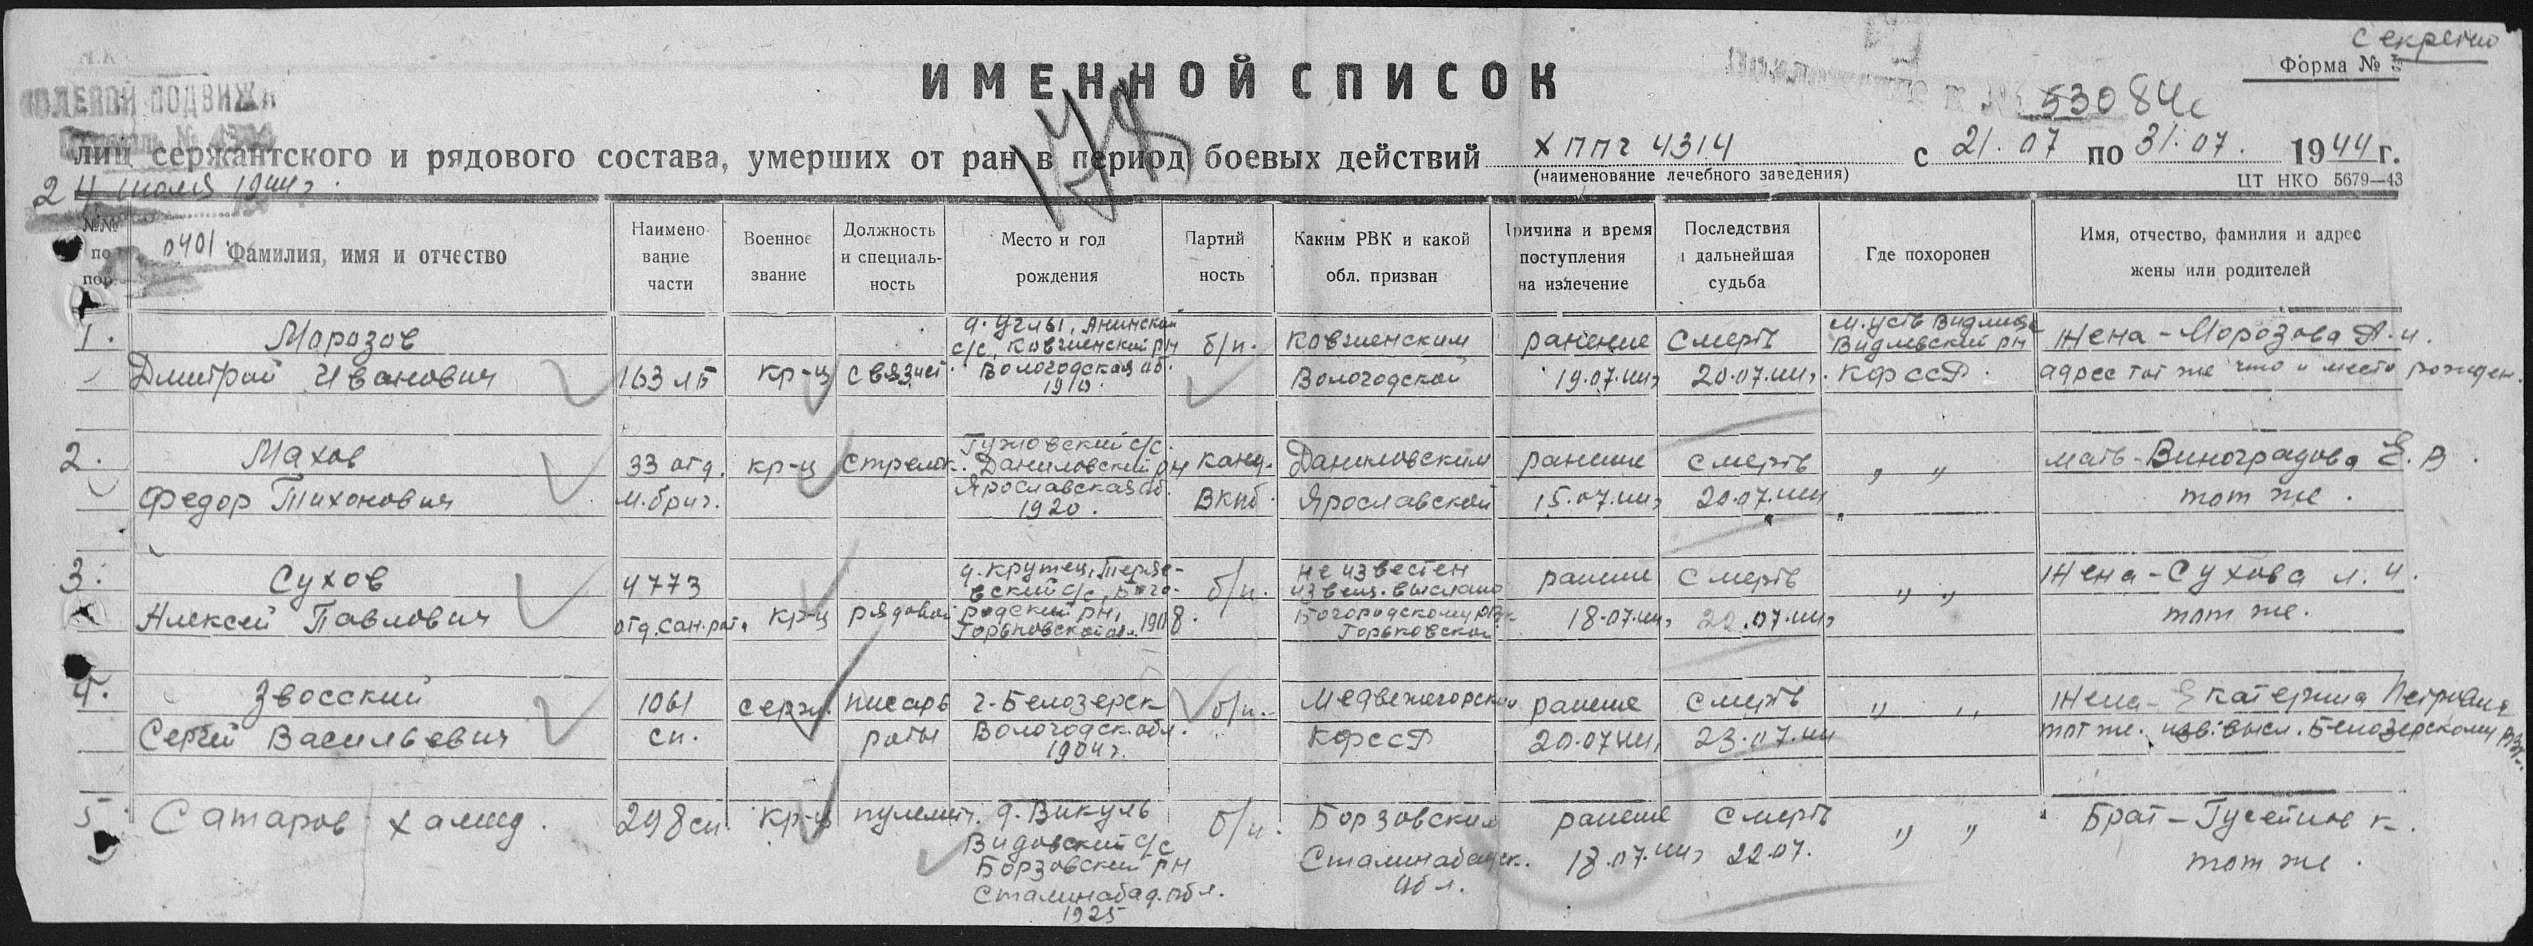 Секретно
Форма № 5
ИМЕННОЙ СПИСОК
ПОЛЕВОЙ ПОДВИЖН
53084с
178
лиц сержантского и рядового состава, умерших от ран в период боевых действий ХППГ 4314 с 21.07 по 31.07. 1944 г.
(наименование лечебного заведения)
ЦТ НКО 5679—43
24 июля 1944г.
0401
№№ по пор.
Фамилия, имя и отчество
Наименование части
Военное звание
Должность и специальность
Место и год рождения
Партийность
Каким РВК и какой обл. призван
Причина и время поступления на излечение
Последствия и дальнейшая судьба
Где похоронен
Имя, отчество, фамилия и адрес жены или родителей
1. Морозов
Дмитрий Иванович
163 ЛБ
кр-ц
связист.
д. Углы, Анинский
с/с, Ковжинский рн
Вологодская об.
1910.
б/п.
Ковжинским
Вологодской
ранение
19.07.44г
Смерть
20.07.44г.
м. усть Видлица
Видлевский рн
КФССР.
Жена - Морозова А.И.
адрес тот же что и место рожден.
2. Махов
Федор Тихонович
33 отд.
м.бриг.
кр-ц
стрелок.
с/с.
Даниловский рн
Ярославская об.
1920.
канд.
ВКПб.
Даниловским
Ярославской
ранение
15.07.44г
смерть
20.07.44
" "
мать - Виноградова Е.В.
тот же.
3. Сухов
Алексей Павлович
4773
отд.сан.рота
кр-ц
рядовой
д. Крутец,
вский с/с, Бого-
родский рн,
Горьковской обл. 1908.
б/п.
не известен
извещ. выслано
Богородскому РВК
Горьковской
ранение
18.07.44г
смерть
.07.44г
" "
Жена - Сухова Л.И.
тот же.
4. Звосский
Сергей Васильевич
1061
сп.
серж.
писарь
роты
г. Белозерск
Вологодск. обл.
1904г.
б/п.
Медвежегорский
КФССР
ранение
20.07.44г
смерть
23.07.44
" "
Жена - Екатерина Петровна
тот же. изв. высл. Белозерскому РВК.
5. Сатаров Хамид.
298 сп.
кр-ц
пулемет.
д. Викуль
Видовский с/с
Борзовский рн
Сталинабад. обл.
1925
б/п.
Борзовским
Сталинабадск.
обл.
ранение
18.07.44г
смерть
22.07.
" "
Брат - Гусейнов К.
тот же.